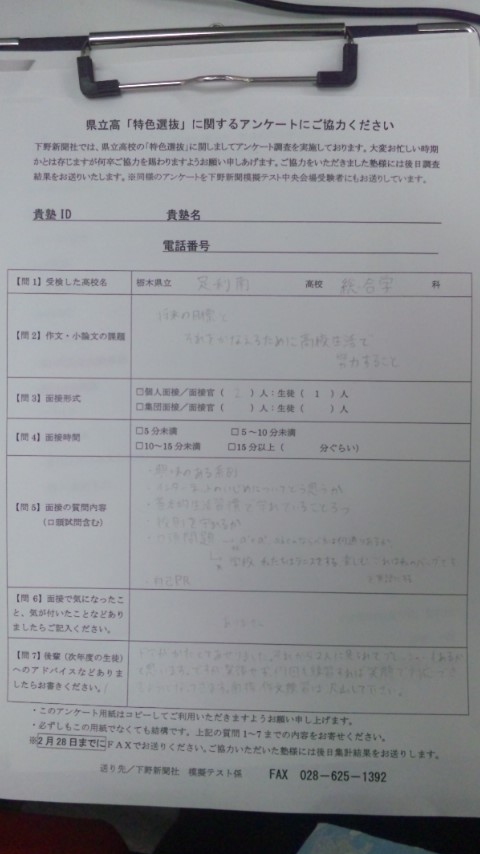 県立高「特色選抜」に関するアンケートにご協力ください
下野新聞社では、県立高校の「特色選抜」に関しましてアンケート調査を実施しております。大変お忙しい時期
かとは存じますが何卒ご協力を賜わりますようお願い申しあげます。ご協力をいただきました塾様には後日調査
結果をお送りいたします。※同様のアンケートを下野新聞模擬テスト中央会場受験者にもお送りしています。
貴塾ID 貴塾名
電話番号
【問1】受検した高校名 栃木県立 足利南 高校 総合学 科
【問2】作文・小論文の課題 将来の目標と
それをかなえるために高校生活で
努力すること
【問3】面接形式 □個人面接/面接官( 2 )人:生徒( 1 )人
□集団面接/面接官( )人:生徒( )人
【問4】面接時間 □5分未満 □5~10分未満
□10~15分未満 □15分以上( 分ぐらい)
【問5】面接の質問内容
(口頭試問含む)
・興味のある系列
・基本的生活習慣で守れているところ
・校則を守れるか
・口頭問題
・自己PR
【問6】面接で気になったこ
と、気が付いたことなどあり
ましたらご記入ください。
【問7】後輩(次年度の生徒)
へのアドバイスなどありまし
たらお書きください。
・このアンケート用紙はコピーしてご利用いただきますようお願い申し上げます。
・必ずしもこの用紙でなくても結構です。上記の質問1~7までの内容をお寄せください。
※2月28日までにFAXでお送りください。ご協力いただいた塾様には後日集計結果をお送りします。
送り先/下野新聞社 模擬テスト係 FAX 028-625-1392